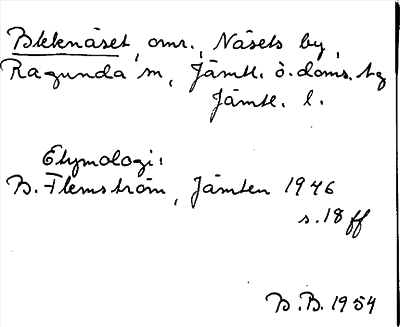 Bleknäset, omr., Näsets by,
Ragunda sn, Jämtl. ö. doms. tg
Jämtl. l.
Etymologi:
B. Flemström, Jämten 1946
s. 18 ff
B.B. 1954